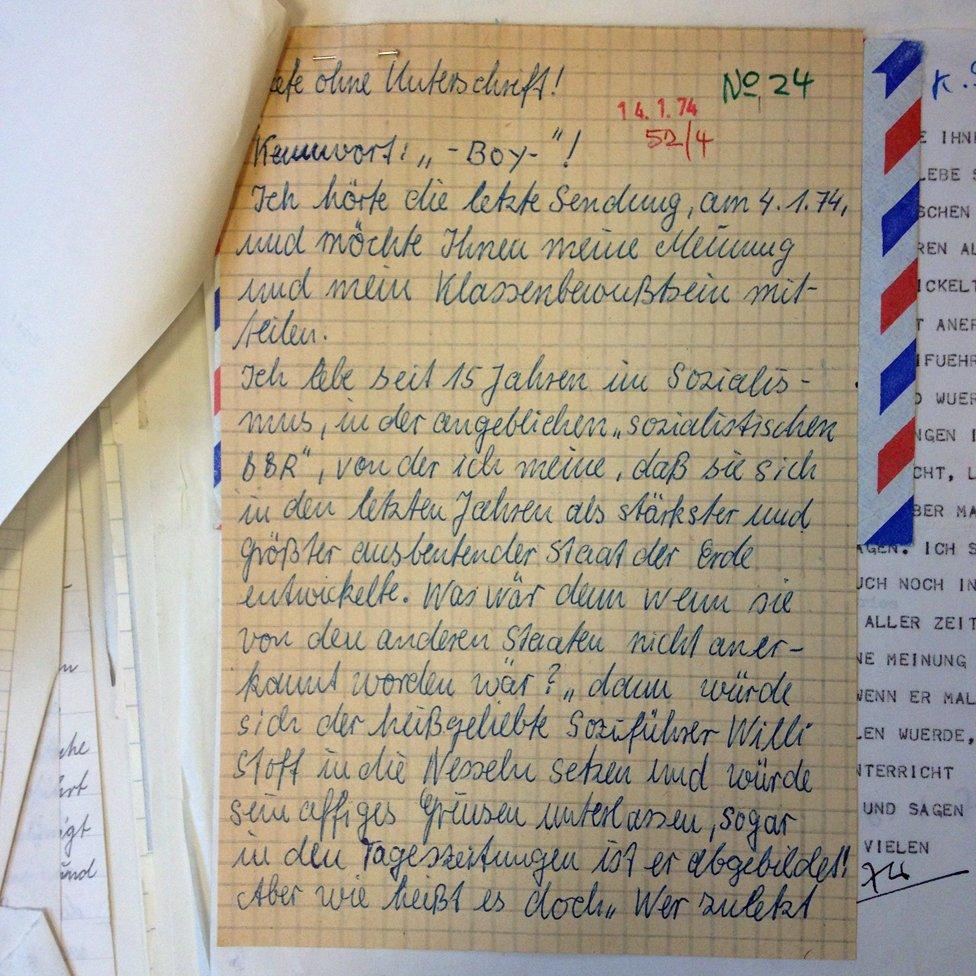 ohne Unterschrift!
No 24
14.1.74
52/4
Kennwort: „-Boy-"!
Ich hörte die letzte Sendung, am 4.1.74,
und möchte Ihnen meine Meinung
und mein Klassenbewußtsein mit-
teilen.
Ich lebe seit 15 Jahren im Sozialis-
mus, in der angeblichen „sozialistischen
DDR", von der ich meine, daß sie sich
in den letzten Jahren als stärkster und
größter ausbeutender Staat der Erde
entwickelte. Was wär denn wenn sie
von den anderen Staaten nicht aner-
kannt worden wär? „dann würde
sich der heißgeliebte Soziführer Willi
Stoff in die Nesseln setzen und würde
sein affiges Grinsen unterlassen, sogar
in den Tageszeitungen ist er abgebildet!
Aber wie heißt es doch „Wer zuletzt
K.
E IHN
LEBE S
SCHEN
REN AL
ICKELT
T ANER
IFUEHR
D WUER
NGEN I
CHT, L
BER MA
AGEN. ICH S
UCH NOCH IN
ALLER ZEIT
NE MEINUNG
WENN ER MAL
LEN WUERDE,
NTERRICHT
UND SAGEN
VIELEN